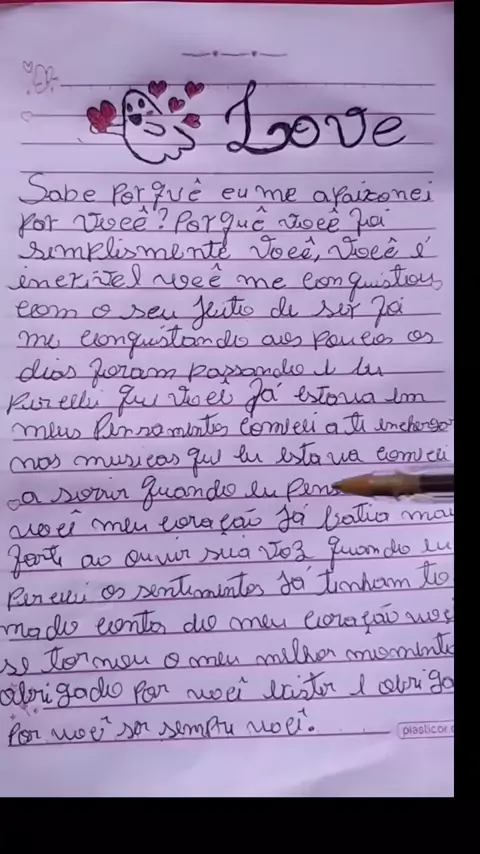 Love
Sabe Porquê eu me apaixonei
por você? Porquê você foi
simplismente você, você é
incrível você me conquistou
com o seu jeito de ser foi
me conquistando aos poucos os
dias foram passando e eu
Percebi que você Já estava em
meus Pensamentos comecei a ti enchergar
nas musicas que eu estava comecei
a sorrir quando eu Pens
você meu coração Já batia mai
forte ao ouvir sua voz quando eu
Percebi os sentimentos Já tinham to
mado conta do meu coração você
se tornou o meu melhor momento
obrigado por você existir e obriga
Por você ser sempre você.
plasticor